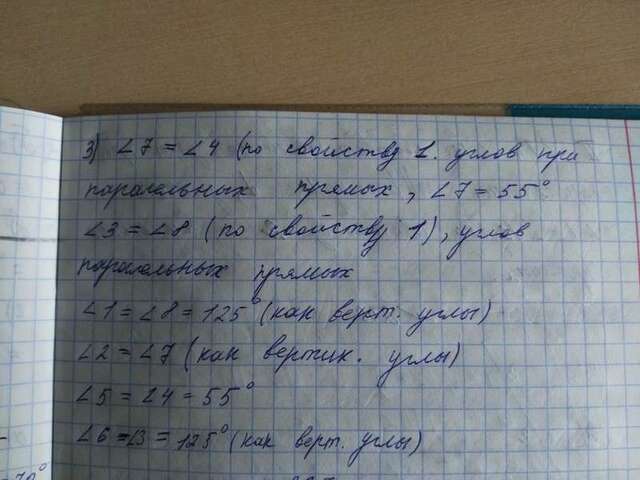 3) ∠7 = ∠4 (по свойству 1. углов при
паралельных прямых, ∠7 = 55°.
∠3 = ∠8 (по свойству 1), углов
паралельных прямых
∠1 = ∠8 = 125° (как верт. углы)
∠2 = ∠7 (как вертик. углы)
∠5 = ∠4 = 55°
∠6 = ∠3 = 125° (как верт. углы)